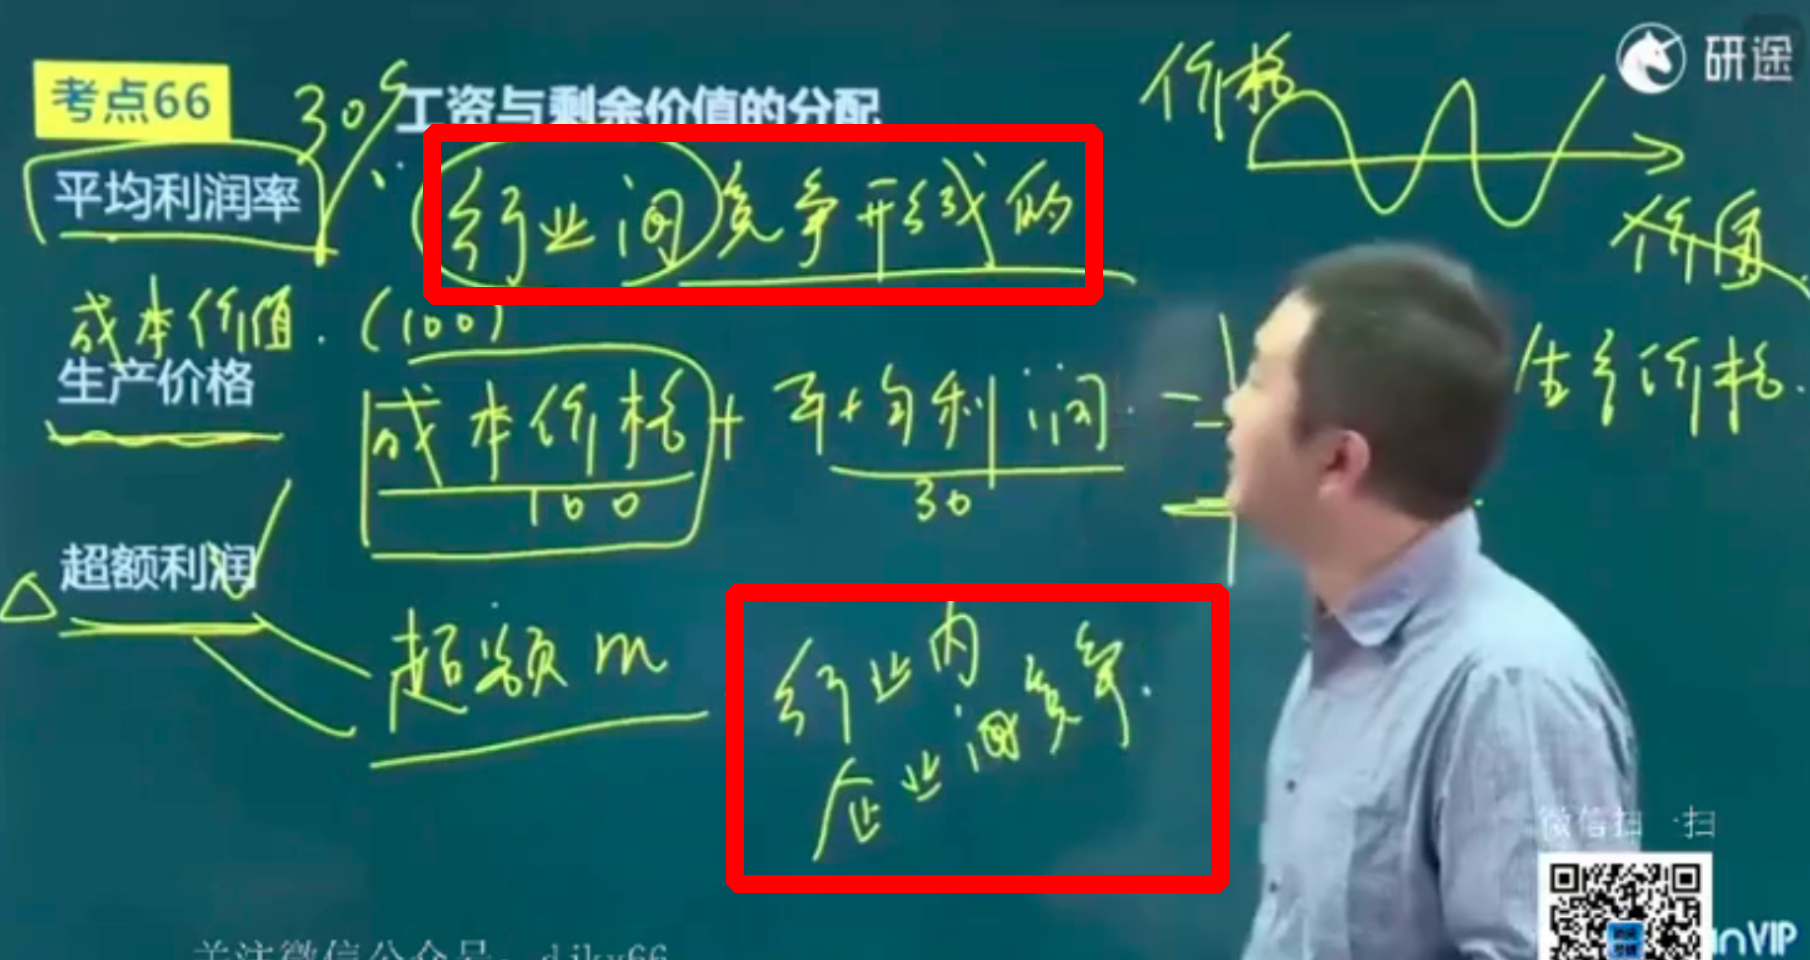 研途
考点66
30%
工资与剩余价值的分配
价格
平均利润率
行业间竞争形成的
价值
成本价值.(100)
生产价格
成本价格+平均利润
100
30
生产价格.
超额利润
超额m
行业内
企业间竞争.
微信扫一扫
关注微信公众号:djky66
VIP